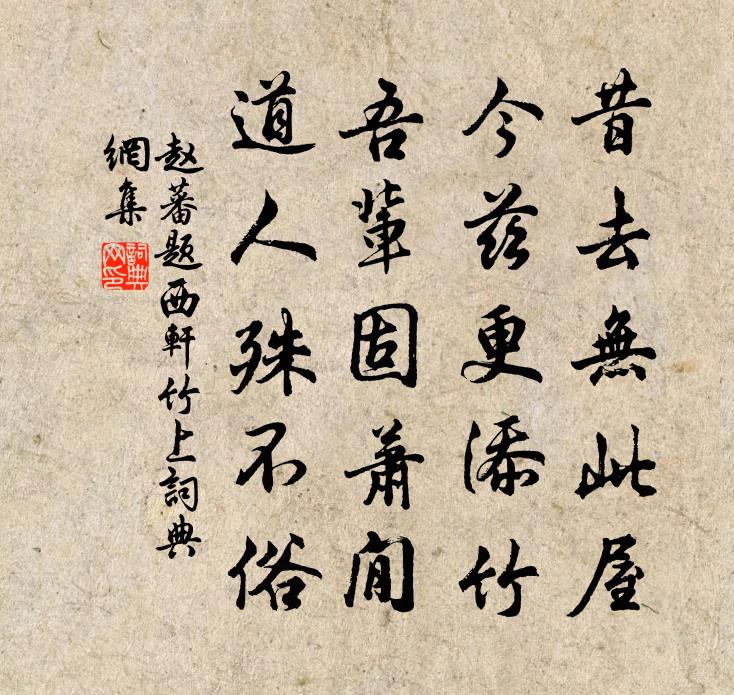 昔去無此屋
今茲更添竹
吾輩固蕭閒
道人殊不俗
赵蕃题西軒竹上詞典
網集
詞典网印